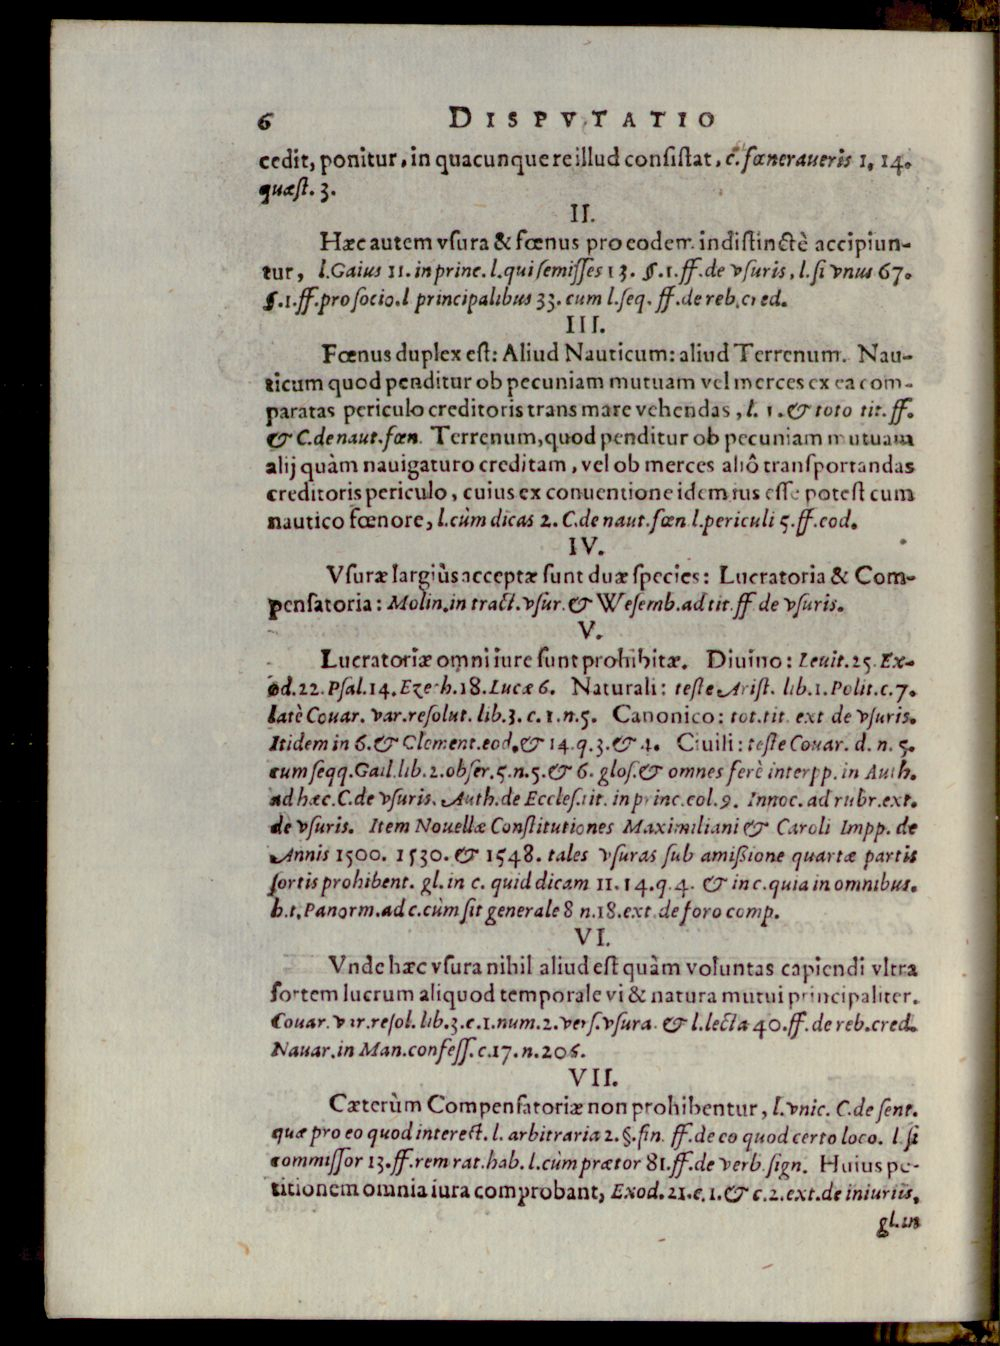 6 DISPVTATIO
cedit, ponitur, in quacunque re illud consistat, c. fœneraueris 1, 14.
quæst. 3.
II.
Hæc autem vsura & fœnus pro eodem indistinctè accipiun-
tur, l. Gaius 11. in princ. l. qui semisses 13. §. 1. ff. de vsuris, l. si vnus 67.
§. 1. ff. pro socio. l principalibus 33. cum l. seq. ff. de reb. cred.
III.
Fœnus duplex est: Aliud Nauticum: aliud Terrenum. Nau-
ticum quod penditur ob pecuniam mutuam vel merces ex ea com-
paratas periculo creditoris trans mare vehendas, l. 1. & toto tit. ff.
& C. de naut. fœn. Terrenum, quod penditur ob pecuniam mutuam
alij quàm nauigaturo creditam, vel ob merces aliô transportandas
creditoris periculo, cuius ex conuentione idem ius esse potest cum
nautico fœnore, l. cùm dicas 2. C. de naut. fœn l. periculi 5. ff. eod.
IV.
Vsuræ largiùs acceptæ sunt duæ species: Lucratoria & Com-
pensatoria: Molin. in tract. vsur. & Wesemb. ad tit. ff de vsuris.
V.
Lucratoriæ omni iure sunt prohibitæ. Diuino: Leuit. 25. Ex-
od. 22. Psal. 14. Ezech. 18. Lucæ 6. Naturali: teste Arist. lib. 1. Polit. c. 7.
latè Couar. var. resolut. lib. 3. c. 1. n. 5. Canonico: tot. tit. ext de vsuris.
Itidem in 6. & Clement. eod. & 14. q. 3. & 4. Ciuili: teste Couar. d. n. 5.
cum seqq. Gail. lib. 2. obser. 5. n. 5. & 6. glos. & omnes ferè interpp. in Auth.
ad hæc. C. de vsuris. Auth. de Eccles. tit. in princ. col. 9. Innoc. ad rubr. ext.
de vsuris. Item Nouellæ Constitutiones Maximiliani & Caroli Impp. de
Annis 1500. 1530. & 1548. tales vsuras sub amißione quartæ partis
sortis prohibent. gl. in c. quid dicam 11. 14. q. 4. & in c. quia in omnibus.
h. t. Panorm. ad c. cùm sit generale 8 n. 18. ext. de foro comp.
VI.
Vnde hæc vsura nihil aliud est quàm voluntas capiendi vltra
sortem lucrum aliquod temporale vi & natura mutui principaliter.
Couar. var. resol. lib. 3. c. 1. num. 2. vers. vsura. & l. lecta 40. ff. de reb. cred.
Nauar. in Man. confess. c. 17. n. 206.
VII.
Cæterùm Compensatoriæ non prohibentur, l. vnic. C. de sent.
quæ pro eo quod interest. l. arbitraria 2. §. fin. ff. de eo quod certo loco. l. si
commissor 13. ff. rem rat. hab. l. cùm prætor 81. ff. de verb. sign. Huius pe-
titionem omnia iura comprobant, Exod. 21. c. 1. & c. 2. ext. de iniuriis,
gl. in